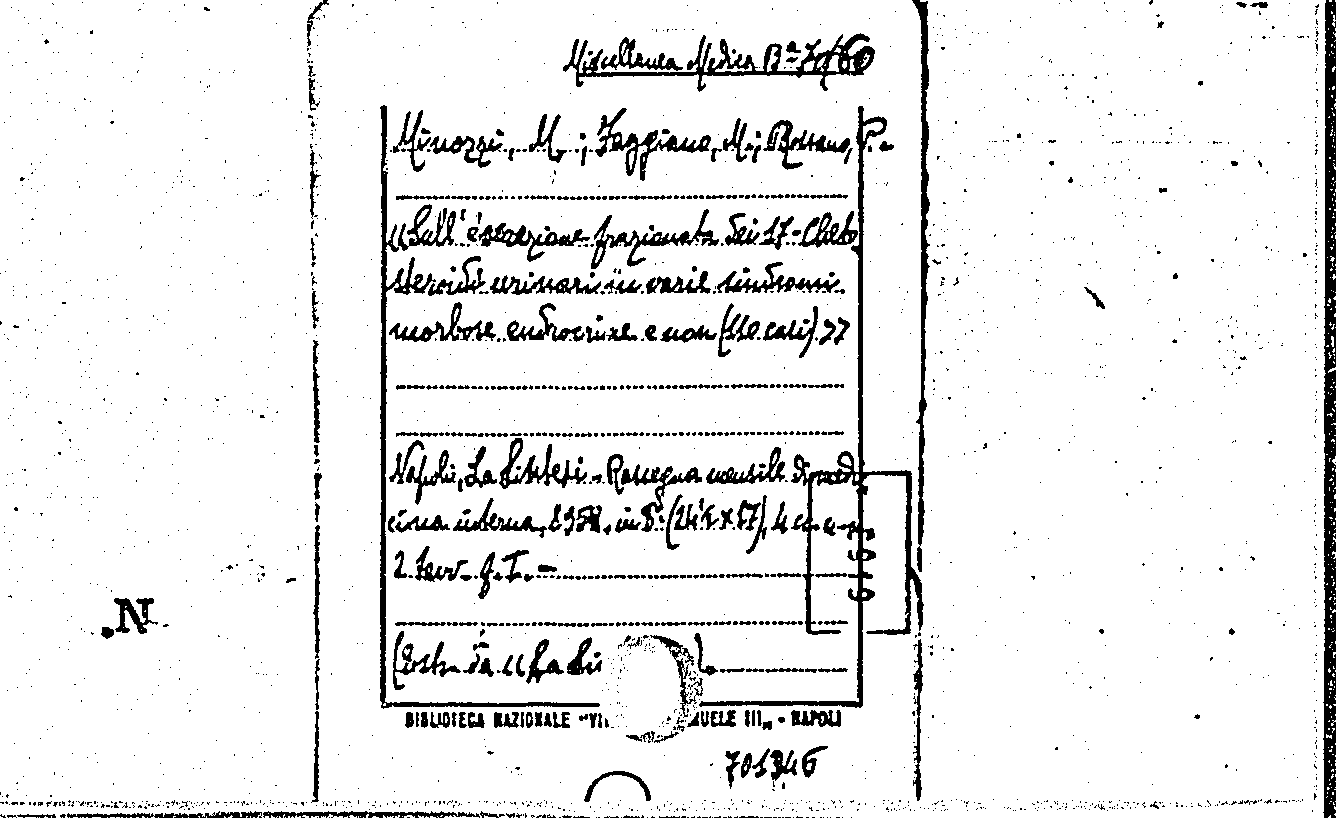 Miscellanea Medica Bª 7/60
Minozzi, M.; Faggiano, M.; Rossano, P. -
"Sull'escrezione frazionata dei 17-Cheto
steroidi urinari in varie sindromi
morbose endocrine e non (110 casi)"
Napoli, La Sintesi - Rassegna mensile di medi
cina interna, 1958. in 8° (24½ x 17), 4
2 Tavv. f. T. -
(Estr. da "La Si ).
BIBLIOTECA NAZIONALE "VI UELE III„ - NAPOLI
701346
N.